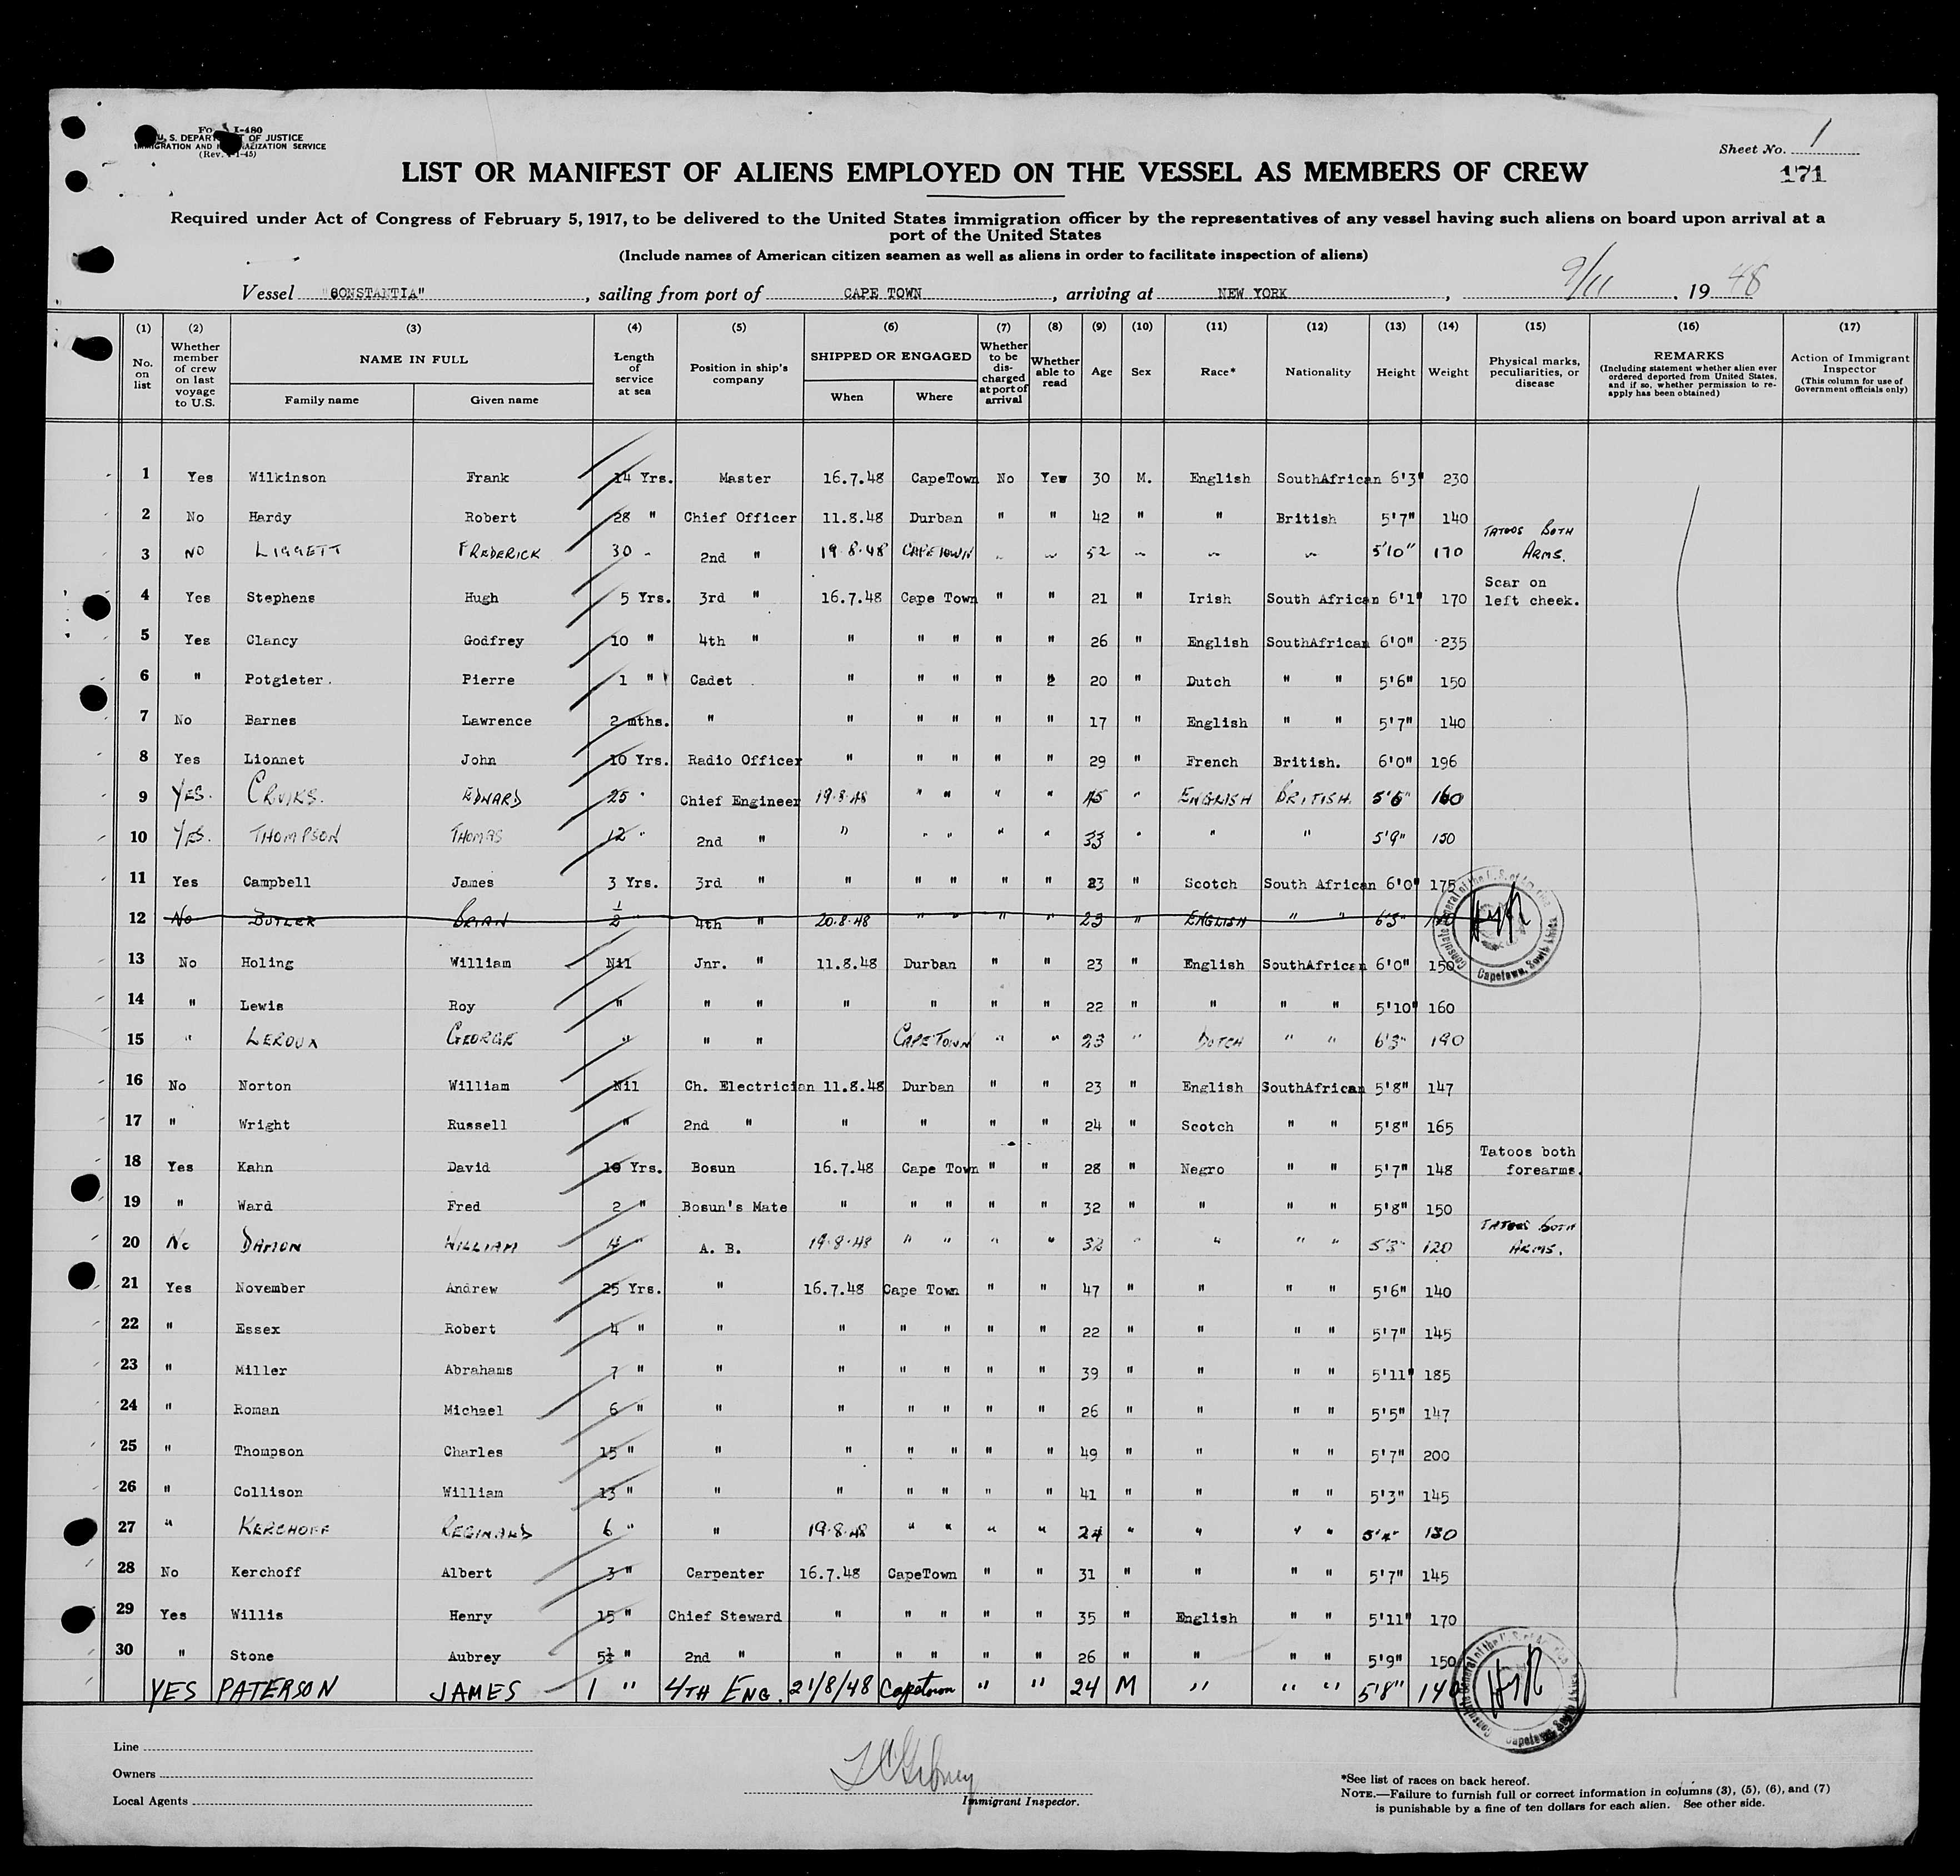 Form I-480
U. S. DEPARTMENT OF JUSTICE
IMMIGRATION AND NATURALIZATION SERVICE
(Rev. 1-45)
Sheet No. 1
171
LIST OR MANIFEST OF ALIENS EMPLOYED ON THE VESSEL AS MEMBERS OF CREW
Required under Act of Congress of February 5, 1917, to be delivered to the United States immigration officer by the representatives of any vessel having such aliens on board upon arrival at a
port of the United States
(Include names of American citizen seamen as well as aliens in order to facilitate inspection of aliens)
Vessel "CONSTANTIA", sailing from port of CAPE TOWN, arriving at NEW YORK, 9/11, 1948
(1) (2) (3) (4) (5) (6) (7) (8) (9) (10) (11) (12) (13) (14) (15) (16) (17)
No. on list Whether member of crew on last voyage to U.S. NAME IN FULL Family name Given name Length of service at sea Position in ship's company SHIPPED OR ENGAGED When Where Whether to be discharged at port of arrival Whether able to read Age Sex Race* Nationality Height Weight Physical marks, peculiarities, or disease REMARKS (Including statement whether alien ever ordered deported from United States, and if so, whether permission to re-apply has been obtained) Action of Immigrant Inspector (This column for use of Government officials only)
1 Yes Wilkinson Frank 14 Yrs. Master 16.7.48 CapeTown No Yew 30 M. English SouthAfrican 6'3" 230
2 No Hardy Robert 28 " Chief Officer 11.8.48 Durban " " 42 " " British 5'7" 140
3 NO LIGGETT FREDERICK 30 " 2nd " 19.8.48 CAPE TOWN " " 52 " " " 5'10" 170 TATOOS BOTH ARMS.
4 Yes Stephens Hugh 5 Yrs. 3rd " 16.7.48 Cape Town " " 21 " Irish South African 6'1" 170 Scar on left cheek.
5 Yes Clancy Godfrey 10 " 4th " " " " " " 26 " English SouthAfrican 6'0" 235
6 " Potgieter. Pierre 1 " Cadet " " " " 2 20 " Dutch " " 5'6" 150
7 No Barnes Lawrence 2 mths. " " " " " " 17 " English " " 5'7" 140
8 Yes Lionnet John 10 Yrs. Radio Officer " " " " " 29 " French British. 6'0" 196
9 YES. CRUIKS. EDWARD 25 " Chief Engineer 19.8.48 " " " " 45 " ENGLISH BRITISH. 5'6" 160
10 YES. THOMPSON THOMAS 12 " 2nd " " " " " " 33 " " " 5'9" 150
11 Yes Campbell James 3 Yrs. 3rd " " " " " " 23 " Scotch South African 6'0" 175
12 No BUTLER BRIAN 1/2 4th " 20.8.48 " " " " 23 " ENGLISH " " 6'3"
13 No Holing William Nil Jnr. " 11.8.48 Durban " " 23 " English SouthAfrican 6'0" 150
14 " Lewis Roy " " " " " " " 22 " " " " 5'10" 160
15 " LEROUX GEORGE " " " CAPE TOWN " " 23 " DUTCH " " 6'3" 190
16 No Norton William Nil Ch. Electrician 11.8.48 Durban " " 23 " English SouthAfrican 5'8" 147
17 " Wright Russell " 2nd " " " " " 24 " Scotch " " 5'8" 165
18 Yes Kahn David 10 Yrs. Bosun 16.7.48 Cape Town " " 28 " Negro " " 5'7" 148 Tatoos both forearms.
19 " Ward Fred 2 " Bosun's Mate " " " " " 32 " " " " 5'8" 150
20 No DAMON WILLIAM 4 " A. B. 19.8.48 " " " " 32 " " " " 5'3" 120 TATOOS BOTH ARMS.
21 Yes November Andrew 25 Yrs. " 16.7.48 Cape Town " " 47 " " " " 5'6" 140
22 " Essex Robert 4 " " " " " " " 22 " " " " 5'7" 145
23 " Miller Abrahams 7 " " " " " " " 39 " " " " 5'11" 185
24 " Roman Michael 6 " " " " " " " 26 " " " " 5'5" 147
25 " Thompson Charles 15 " " " " " " " 49 " " " " 5'7" 200
26 " Collison William 13 " " " " " " " 41 " " " " 5'3" 145
27 " KERCHOFF REGINALD 6 " " 19.8.48 " " " " 24 " " " " 5'4" 130
28 No Kerchoff Albert 3 " Carpenter 16.7.48 CapeTown " " 31 " " " " 5'7" 145
29 Yes Willis Henry 15 " Chief Steward " " " " " 35 " English " " 5'11" 170
30 " Stone Aubrey 5½ " 2nd " " " " " " 26 " " " " 5'9" 150
YES PATERSON JAMES 1 " 4TH ENG. 21/8/48 Capetown " " 24 M " " " 5'8" 140
Consulate General of the U.S. of America Capetown, South Africa
Consulate General of the U.S. of America Capetown, South Africa
Line
Owners
Local Agents
Immigrant Inspector.
*See list of races on back hereof.
NOTE.—Failure to furnish full or correct information in columns (3), (5), (6), and (7)
is punishable by a fine of ten dollars for each alien. See other side.